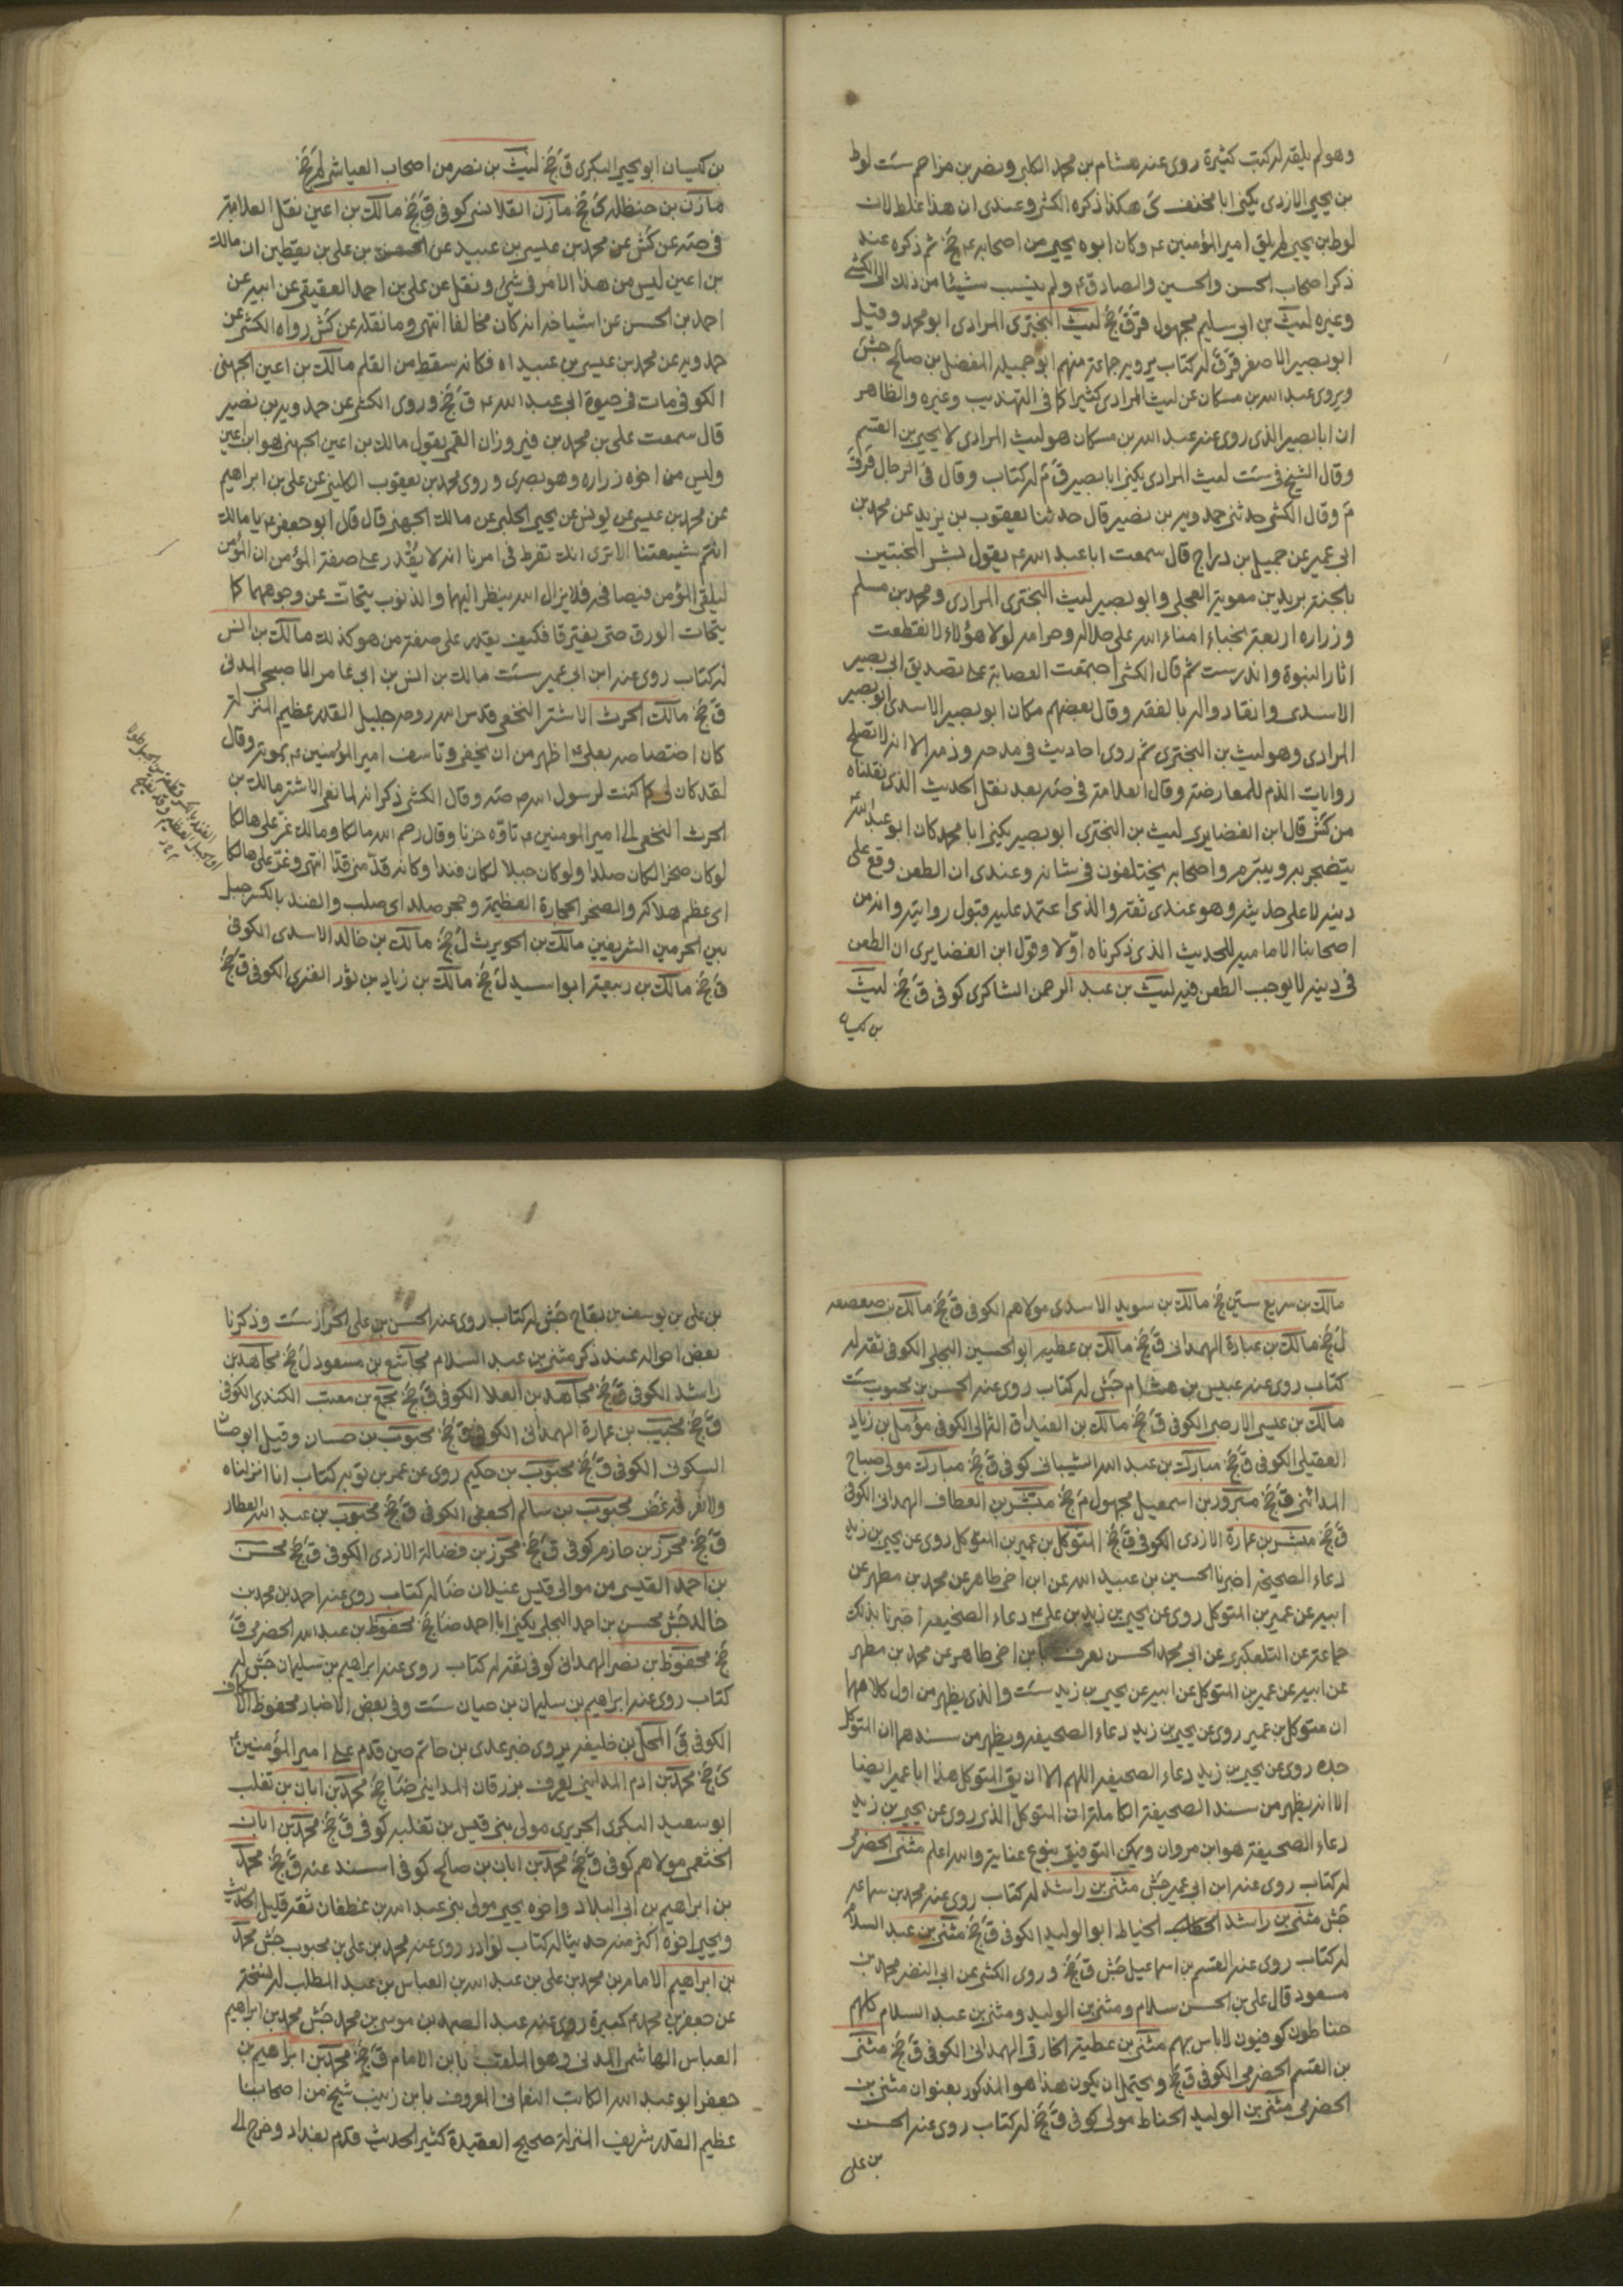 وهو لم يلقه له كتب كثيرة روى عنه هشام بن محمد الكلبى ونصر بن مزاحم ست لوط
بن يحيى الازدى يكنى ابا مخنف ى هكذا ذكره الكشى وعندى ان هذا غلط لان
لوط بن يحيى لم يلق امير المؤمنين ع وكان ابوه يحيى من اصحابه ع جخ ثم ذكره عند
ذكر اصحاب الحسن والحسين والصادق ع ولم ينسب شيئا من ذلك الى الكشى
وغيره ليث بن ابى سليم مجهول قر ق جخ ليث البخترى المرادى ابو محمد وقيل
ابو بصير الاصغر قر ق له كتاب يرويه جماعة منهم ابو جميله المفضل بن صالح جش
ويروى عبد الله بن مسكان عن ليث المرادى كثيرا كما فى التهذيب وغيره والظاهر
ان ابا بصير الذى روى عنه عبد الله بن مسكان هو ليث المرادى لا يحيى بن القسم
وقال الشيخ فى ست ليث المرادى يكنى ابا بصير ق م له كتاب وقال فى الرجال قر ق
م وقال الكشى حدثنى حمدويه بن نصير قال حدثنا يعقوب بن يزيد عن محمد بن
ابى عمير عن جميل بن دراج قال سمعت ابا عبد الله ع يقول بشر المخبتين
بالجنة بريد بن معوية العجلى وابو بصير ليث البخترى المرادى ومحمد بن مسلم
وزراره اربعة نجباء امناء الله على حلاله وحرامه لولا هؤلاء لانقطعت
اثار النبوة واندرست ثم قال الكشى اجتمعت العصابة على تصديق ابى بصير
الاسدى وانقادوا له بالفقه وقال بعضهم مكان ابو بصير الاسدى ابو بصير
المرادى وهو ليث بن البخترى ثم روى احاديث فى مدحه وذمه الا انه لا تصلح
روايات الذم للمعارضة وقال العلامة فى صه بعد نقل الحديث الذى نقلناه
من كش قال ابن الغضايرى ليث بن البخترى ابو بصير يكنى ابا محمد كان ابو عبد الله ع
يتضجر به ويتبرم واصحابه يختلفون فى شانه وعندى ان الطعن وقع على
دينه لا على حديثه وهو عندى ثقة والذى اعتمد عليه قبول روايته وانه من
اصحابنا الامامية للحديث الذى ذكرناه اولا وقول ابن الغضايرى ان الطعن
فى دينه لا يوجب الطعن فيه ليث بن عبد الرحمن الشاكرى كوفى ق جخ ليث
بن كيسان
بن كيسان ابو يحيى البكرى ق جخ ليث بن نصر من اصحاب العياشى لم جخ
مازن بن حنظله ى جخ مازن القلانسى كوفى ق جخ مالك بن اعين نقل العلامة
فى صه عن كش عن محمد بن عيسى بن عبيد عن الحسن بن على بن يقطين ان مالك
بن اعين ليس من هذا الامر فى شئ ونقل عن على بن احمد العقيقى عن ابيه عن
احمد بن الحسن عن اشياخه انه كان مخالفا انتهى وما نقله عن كش رواه الكشى عن
حمدويه عن محمد بن عيسى بن عبيد اه فكانه سقط من القلم مالك بن اعين الجهنى
الكوفى مات فى حيوة ابى عبد الله ع ق جخ وروى الكشى عن حمدويه بن نصير
قال سمعت على بن محمد بن فيروزان القمى يقول مالك بن اعين الجهنى هو ابن اعين
وليس من اخوه زراره وهو بصرى وروى محمد بن يعقوب الكلينى عن على بن ابراهيم
عن محمد بن عيسى عن يونس عن يحيى الحلبى عن مالك الجهنى قال قال ابو جعفر ع يا مالك
انتم شيعتنا الا ترى انك تفرط فى امرنا انه لا يقدر على صفة المؤمن ان المؤمن
ليلقى المؤمن فيصافحه فلا يزال الله ينظر اليهما والذنوب يتحات عن وجوههما كما
يتحات الورق حتى يفترقا فكيف يقدر على صفة من هو كذلك مالك بن انس
له كتاب روى عنه ابن ابى عمير ست مالك بن انس بن ابى عامر الاصبحى المدنى
ق جخ مالك الحرث الاشتر النخعى قدس الله روحه جليل القدر عظيم المنزلة
كان اختصاصه بعلى ع اظهر من ان يخفى وتاسف امير المؤمنين ع بموته وقال
لقد كان لى كما كنت لرسول الله ص صه وقال الكشى ذكر انه لما نعى الاشتر مالك بن
الحرث النخعى الى امير المومنين ع تاوه حزنا وقال رحم الله مالكا ومالك عز على هالكا
لوكان صخرا لكان صلدا ولوكان جبلا لكان فندا وكانه قد منى قدا انتهى وعز على هالكا
اى عظم هلاكه والصخر الحجارة العظيمة وحجر صلد اى صلب والفند بالكسر جبل
بين الحرمين الشريفين مالك بن الحويرث ل جخ مالك بن خالد الاسدى الكوفى
ق جخ مالك بن ربيعة ابو اسيد ل جخ مالك بن زياد بن ثور الفزى الكوفى ق جخ
مالك بن سريع سين جخ مالك بن سويد الاسدى مولاهم الكوفى ق جخ مالك بن صعصعه
ل جخ مالك بن عبارة الهمدانى ق جخ مالك بن عطيه ابو الحسين البجلى الكوفى ثقة له
كتاب روى عنه عبيس بن هشام جش له كتاب روى عنه الحسن بن محبوب ست
مالك بن عيسى الارصى الكوفى ق جخ مالك بن العيداق الثمالى الكوفى مؤمل بن زياد
العقيلى الكوفى ق جخ مبارك بن عبد الله الشيبانى كوفى ق جخ مبارك مولى صباح
المدائنى ق جخ مبرور بن اسمعيل مجهول م جخ مبشر بن العطاف الهمدانى الكوفى
ق جخ مبشر بن عمارة الازدى الكوفى ق جخ المتوكل بن عمير بن المتوكل روى عن يحيى بن زيد
دعاء الصحيفة اخبرنا الحسين بن عبيد الله عن ابن اخى طاهر عن محمد بن مطهر عن
ابيه عن عمير بن المتوكل روى عن يحيى بن زيد بن على ع دعاء الصحيفه اخبرنا بذلك
جماعة عن التلعكبرى عن ابى محمد الحسن يعرف بابن اخى طاهر عن محمد بن مطهر
عن ابيه عن عمير بن المتوكل عن ابيه عن يحيى بن زيد ست والذى يظهر من اول كلامهما
ان متوكل بن عمير روى عن يحيى بن زيد دعاء الصحيفه ويظهر من سندهما ان المتوكل
جده روى عن يحيى بن زيد دعاء الصحيفه اللهم الا ان يق المتوكل هذا ابا عمير ايضا
الا انه يظهر من سند الصحيفة الكاملة ان المتوكل الذى روى عن يحيى بن زيد
دعاء الصحيفة هو ابن مروان ويمكن التوفيق بنوع عناية والله اعلم مثنى الحضرمى
له كتاب روى عنه ابن ابى عمير جش مثنى بن راشد له كتاب روى عنه محمد بن سماعه
جش مثنى بن راشد الحناط ابو الوليد الكوفى ق جخ مثنى بن عبد السلام
له كتاب روى عنه القسم بن اسماعيل جش ق جخ وروى الكشى عن ابى النضر محمد بن
مسعود قال على بن الحسن سلام ومثنى بن الوليد ومثنى بن عبد السلام كلهم
حناطون كوفيون لا باس بهم مثنى بن عطية الخارقى الهمدانى الكوفى ق جخ مثنى
بن القسم الحضرمى الكوفى ق جخ ويحتمل ان يكون هذا هو المذكور بعنوان مثنى بن
الحضرمى مثنى بن الوليد الحناط مولى كوفى ق جخ له كتاب روى عنه الحسن
بن على
بن على بن يوسف بن بقاح جش له كتاب روى عنه الحسن بن على الخزاز ست وذكرنا
بعض احواله عند ذكر مثنى بن عبد السلام مجاشع بن مسعود ل جخ مجاهد بن
راشد الكوفى ق جخ مجاهد بن العلا الكوفى ق جخ مجمع بن معتب الكندى الكوفى
ق جخ محبب بن عمارة الهمدانى الكوفى ق جخ محبوب بن حسان وقيل ابو حسان
السكونى الكوفى ق جخ محبوب بن حكيم روى عن عمر بن توبه كتاب انا انزلناه
محبوب بن سالم الجعفى الكوفى ق جخ محبوب بن عبد الله العطار
ق جخ محرز بن حازم كوفى ق جخ محرز بن فضالة الازدى الكوفى ق جخ محسن
بن احمد القيسى من موالى قيس عيلان ضا له كتاب روى عنه احمد بن محمد بن
خالد جش محسن بن احمد البجلى يكنى ابا احمد ضا جخ محفوظ بن عبد الله الحضرمى ق
جخ محفوظ بن نصر الهمدانى كوفى ثقة له كتاب روى عنه ابراهيم بن سليمان جش له
كتاب روى عنه ابراهيم بن سليمان بن حيان ست وفى بعض الاخبار محفوظ الاسكاف
الكوفى ق المحل بن خليفه يروى خبر عدى بن حاتم حين قدم على امير المؤمنين ع
ى جخ محمد بن ادم المداينى يعرف بزرقان المداينى ضا جخ محمد بن ابان بن تغلب
ابو سعيد البكرى الجريرى مولى بنى قيس بن ثعلبه كوفى ق جخ محمد بن ابان
الخثعمى مولاهم كوفى ق جخ محمد بن ابان بن صالح كوفى اسند عنه ق جخ محمد
بن ابراهيم بن ابى البلاد واخوه يحيى مولى بنى عبد الله بن غطفان ثقه قليل الحديث
ويحيى اخوه اكثر منه حديثا له كتاب نوادر روى عنه محمد بن على بن محبوب جش محمد
بن ابراهيم الامام بن محمد بن على بن عبد الله بن العباس بن عبد المطلب له نسخة
عن جعفر بن محمد ع كبيرة روى عنه عبد الصمد بن موسى بن محمد جش محمد بن ابراهيم
العباس الهاشمى المدنى وهو الملقب بابن الامام ق جخ محمد بن ابراهيم بن
جعفر ابو عبد الله الكاتب النعمانى المعروف بابن زينب شيخ من اصحابنا
عظيم القدر شريف المنزلة صحيح العقيدة كثير الحديث قدم بغداد وخرج الى